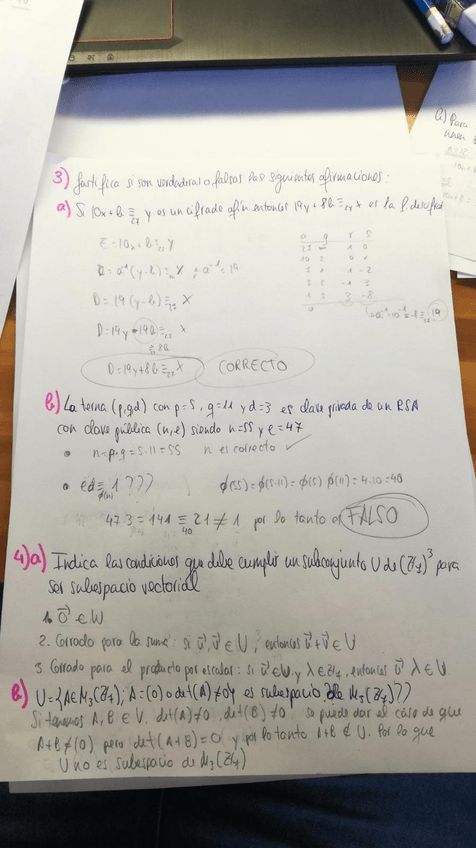 3) Justifica si son verdaderas o falsas las siguientes afirmaciones.
a) Si 10x+b ≡₂₇ y es un cifrado afín entonces 19y+8b ≡₂₇ x es la f. descifrat
E=10x+b≡₂₇ y
D=a⁻¹(y-b)≡₂₇ x ; a⁻¹=19
D=19(y-b)≡₂₇ x
D=19y-19b≡₂₇ x
≡₂₇ 8b
D=19y+8b≡₂₇ x CORRECTO
a q r s
27 1 0
10 2 0 1
7 1 1 -2
3 2 -1 3
1 3 3 -8
0
=a⁻¹=10⁻¹=-8≡₂₇ 19
b) La terna (p,q,d) con p=5, q=11 y d=3 es clave privada de un RSA
con clave pública (n,e) siendo n=55 y e=47
• n=p·q=5·11=55 n es correcto ✓
• ed≡1??? ϕ(55)=ϕ(5·11)=ϕ(5)ϕ(11)=4·10=40
ϕ(n)
47·3=141≡₄₀ 21≠1 por lo tanto es FALSO
4) a) Indica las condiciones que debe cumplir un subconjunto U de (ℤ₇)³ para
ser subespacio vectorial
1. 0⃗ ∈ W
2. Cerrado para la suma: si u⃗, v⃗ ∈ U, entonces u⃗+v⃗ ∈ U
3. Cerrado para el producto por escalar: si u⃗ ∈ W y λ ∈ ℤ₇, entonces u⃗ λ ∈ U
b) U={A∈M₃(ℤ₇); A=(0) o det(A)≠0} es subespacio de M₃(ℤ₇)??
Si tenemos A, B ∈ U, det(A)≠0, det(B)≠0 se puede dar el caso de que
A+B≠(0) pero det(A+B)=0 y por lo tanto A+B∉U. Por lo que
U no es subespacio de M₃(ℤ₇)
a) Para